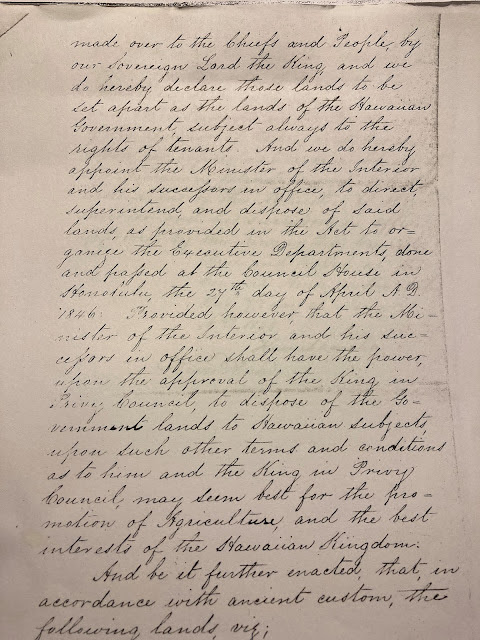 made over to the Chiefs and People, by
our Sovereign Lord the King, and we
do hereby declare those lands to be
set apart as the lands of the Hawaiian
Government, subject always to the
rights of tenants. And we do hereby
appoint the Minister of the Interior
and his successors in office, to direct,
superintend, and dispose of said
lands, as provided in the Act to or-
ganize the Executive Departments, done
and passed at the Council House in
Honolulu, the 27th day of April A.D.
1846: Provided however, that the Mi-
nister of the Interior and his suc-
cessors in office shall have the power,
upon the approval of the King in
Privy Council, to dispose of the Go-
vernment lands to Hawaiian subjects,
upon such other terms and conditions
as to him and the King in Privy
Council, may seem best for the pro-
motion of Agriculture, and the best
interests of the Hawaiian Kingdom:
And be it further enacted, that, in
accordance with ancient custom, the
following lands, viz;